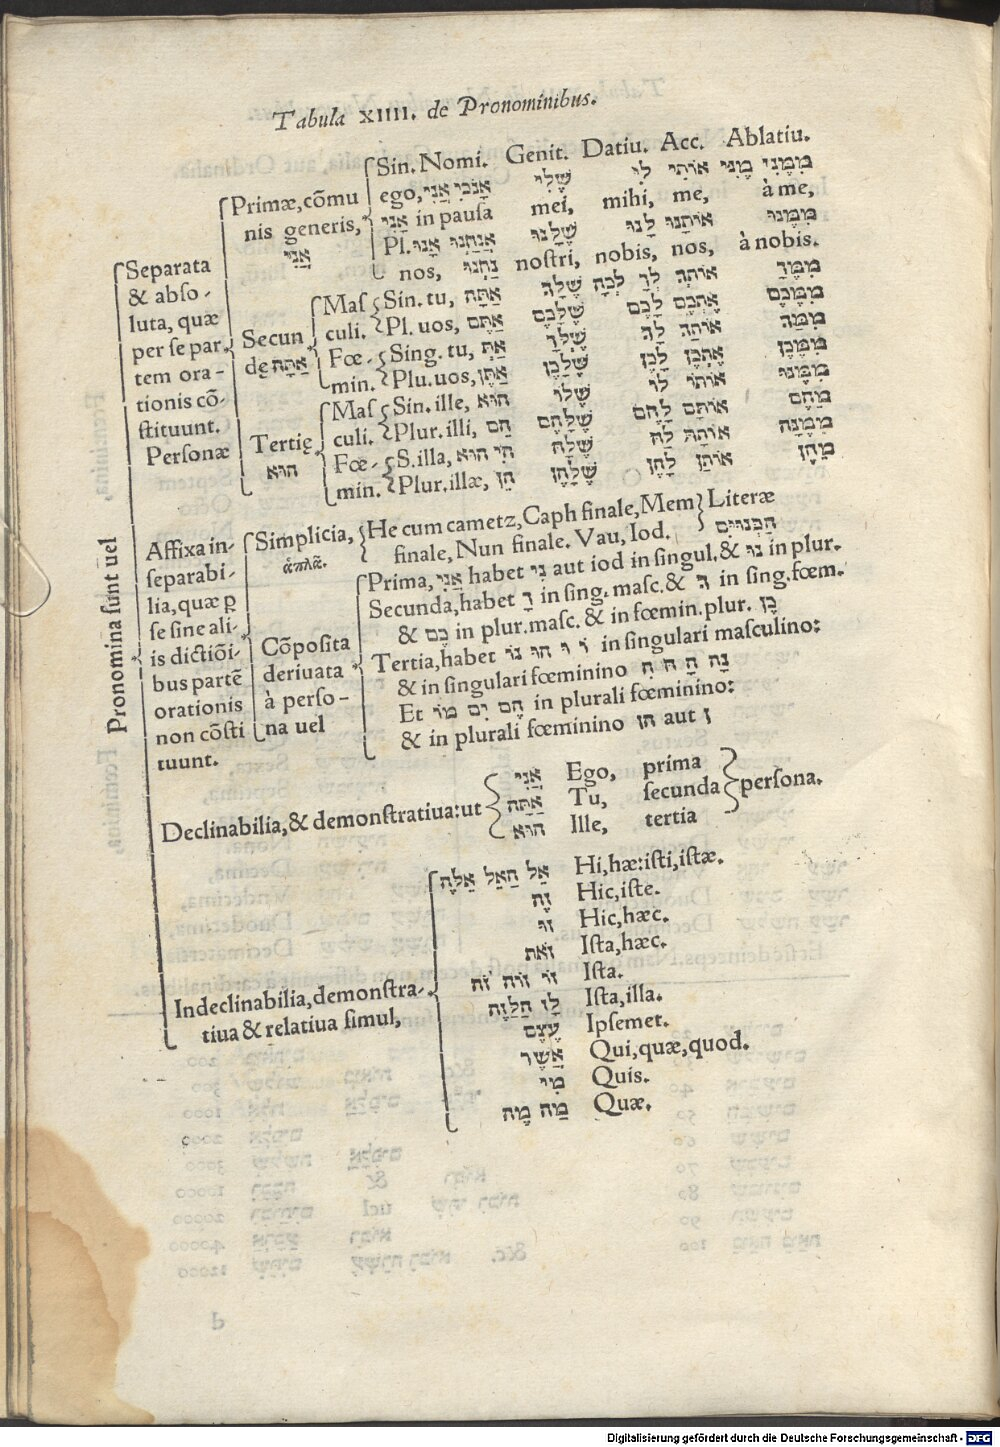 Tabula XIIII. de Pronominibus.
Pronomina sunt uel
Separata
& abso-
luta, quæ
per se par
tem ora-
tionis cō-
stituunt.
Personæ
Primæ, cōmu
nis generis,
אֲנִי
Sin. Nomi. Genit. Datiu. Acc. Ablatiu.
ego, אָנֹכִי אֲנִי שֶׁלִּי לִי אוֹתִי מִמֶּנִּי מֶנִּי
אָנִי in pausa mei, mihi, me, à me,
Pl. אֲנַחְנוּ אָנוּ שֶׁלָּנוּ לָנוּ אוֹתָנוּ מִמֶּנּוּ
nos, נַחְנוּ nostri, nobis, nos, à nobis.
Secun
dę אַתָּה
Mas
culi.
Sin. tu, אַתָּה שֶׁלְּךָ לְךָ לְכָה אוֹתְךָ מִמְּךָ
Pl. uos, אַתֶּם שֶׁלָּכֶם לָכֶם אֶתְכֶם מִמְּכֶם
Fœ-
min.
Sing. tu, אַתְּ שֶׁלָּךְ לָךְ אוֹתָךְ מִמֵּךְ
Plu. uos, אַתֶּן שֶׁלָּכֶן לָכֶן אֶתְכֶן מִמְּכֶן
Tertię
הוּא
Mas
culi.
Sin. ille, הוּא שֶׁלּוֹ לוֹ אוֹתוֹ מִמֶּנּוּ
Plur. illi, הֵם שֶׁלָּהֶם לָהֶם אוֹתָם מֵהֶם
Fœ-
min.
S. illa, הִי הוּא שֶׁלָּהּ לָהּ אוֹתָהּ מִמֶּנָּה
Plur. illæ, הֵן שֶׁלָּהֶן לָהֶן אוֹתָן מֵהֶן
Affixa in-
separabi-
lia, quæ ꝑ
se sine ali-
is dictiōi-
bus partē
orationis
non cōsti
tuunt.
Simplicia,
ἁπλᾶ.
He cum cametz, Caph finale, Mem
finale, Nun finale. Vau, Iod.
Literæ
הַכִּנּוּיִים
Cōposita
deriuata
à perso-
na uel
Prima, אֲנִי habet נִי aut iod in singul. & נוּ in plur.
Secunda, habet ךָ in sing. masc. & ךְ in sing. fœm.
& כֶם in plur. masc. & in fœmin. plur. כֶן
Tertia, habet וֹ ו הוּ נוֹ in singulari masculino:
& in singulari fœminino נָּה הָ הּ הַ
Et הֶם ים מוֹ in plurali fœminino:
& in plurali fœminino הן aut ן
Declinabilia, & demonstratiua: ut
אֲנִי Ego, prima
אַתָּה Tu, secunda
הוּא Ille, tertia
persona.
Indeclinabilia, demonstra-
tiua & relatiua simul,
אֵל הָאֵל אֵלֶּה Hi, hæ: isti, istæ.
זֶה Hic, iste.
זוּ Hic, hæc.
זֹאת Ista, hæc.
זוֹ זוֹה זֹה Ista.
לָז הַלָּזֶה Ista, illa.
עֶצֶם Ipsemet.
אֲשֶׁר Qui, quæ, quod.
מִי Quis.
מַה מֶה Quæ.
Digitalisierung gefördert durch die Deutsche Forschungsgemeinschaft - DFG